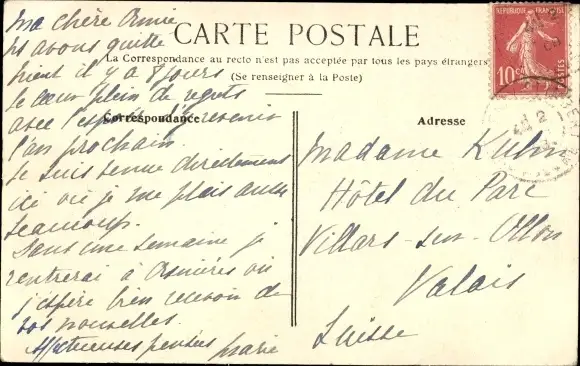 CARTE POSTALE
La Correspondance au recto n'est pas acceptée par tous les pays étrangers
(Se renseigner à la Poste)
Correspondance
Ma chère Amie
ns avons quitté
il y a 8 jours
le cœur plein de regrets
avec l'espoir d'y revenir
l'an prochain
Je suis venue directement
ici où je me plais aussi
beaucoup.
Dans une semaine je
rentrerai à Asnières où
j'espère bien recevoir de
vos nouvelles
Affectueuses pensées Marie
REPUBLIQUE FRANÇAISE
10c
POSTES
Adresse
Madame Kubin
Hôtel du Parc
Villars-sur-Ollon
Valais
Suisse